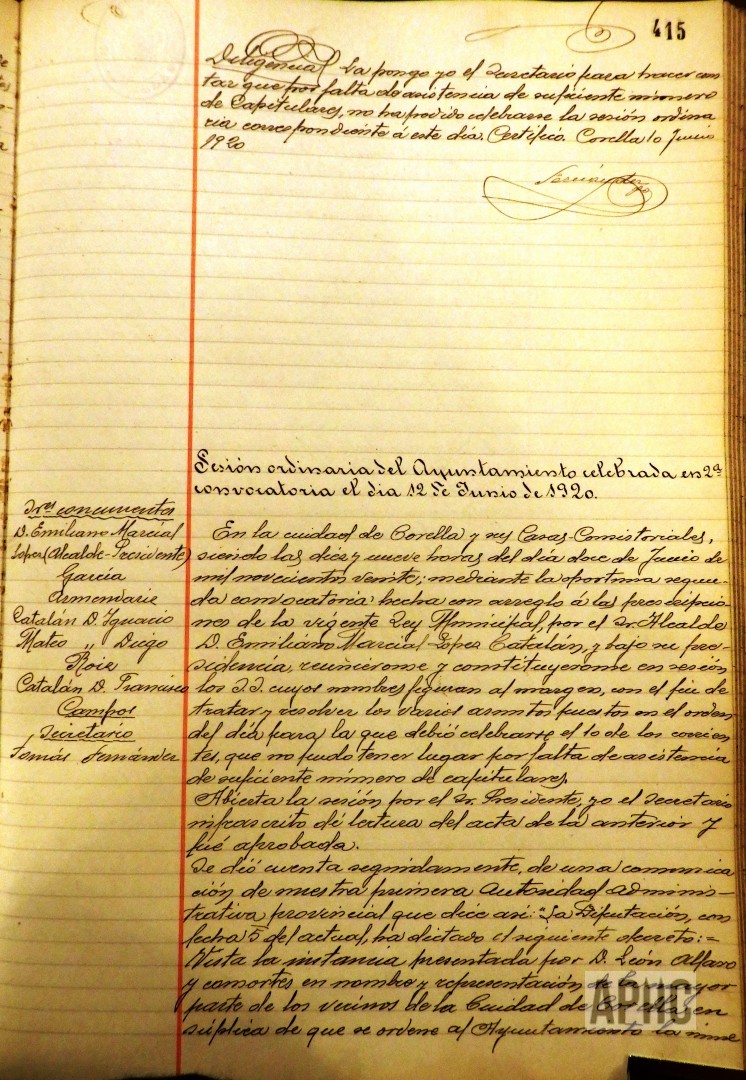 415
Diligencia La pongo yo el Secretario para hacer cons
tar que por falta de asistencia de suficiente número
de Capitulares, no ha podido celebrarse la sesión ordina
ria correspondiente á este día. Certifico. Corella 10 Junio
1920
Sesión ordinaria del Ayuntamiento celebrada en 2ª
convocatoria el dia 12 de Junio de 1920.
Sres concurrentes
D. Emiliano Marcial
López (Alcalde-Presidente)
García
Armendariz
Catalán D. Ignacio
Mateo " Diego
Roie
Catalán D. Francisco
Campos
Secretario
Tomás Fernández
En la ciudad de Corella y sus Casas-Consistoriales,
siendo las diez y nueve horas del día doce de Junio de
mil novecientos veinte; mediante la oportuna segun-
da convocatoria hecha con arreglo á las prescripcio-
nes de la vigente Ley Municipal, por el Sr. Alcalde
D. Emiliano Marcial López Catalán, y bajo su pre-
sidencia, reuniéronse y constituyeronse en sesión
los S.S. cuyos nombres figuran al margen, con el fin de
tratar y resolver los varios asuntos puestos en el orden
del día para la que debió celebrarse el 10 de los corrien-
tes, que no pudo tener lugar por falta de asistencia
de suficiente número de capitulares.
Abierta la sesión por el Sr. Presidente, yo el Secretario
infrascrito dí lectura del acta de la anterior y
fué aprobada.
Se dió cuenta seguidamente, de una comunica
ción de nuestra primera Autoridad adminis-
trativa provincial que dice así: "La Diputación, con
fecha 5 del actual, ha dictado el siguiente decreto:=
Vista la instancia presentada por D. León Alfaro
y consortes en nombre y representación de la mayor
parte de los vecinos de la Ciudad de Corella en
súplica de que se ordene al Ayuntamiento la inme
APHC